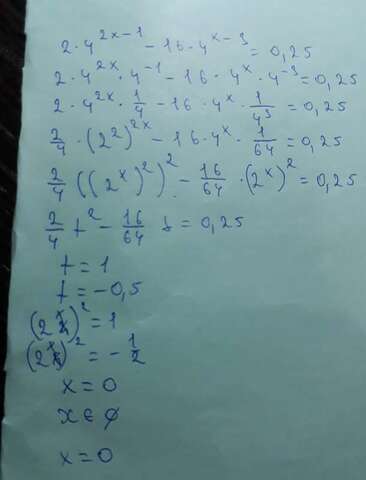 2·4^{2x-1} - 16·4^{x-3} = 0,25
2·4^{2x}·4^{-1} - 16·4^x·4^{-3} = 0,25
2·4^{2x}·\frac{1}{4} - 16·4^x·\frac{1}{4^3} = 0,25
\frac{2}{4}·(2^2)^{2x} - 16·4^x·\frac{1}{64} = 0,25
\frac{2}{4}((2^x)^2)^2 - \frac{16}{64}·(2^x)^2 = 0,25
\frac{2}{4}t^2 - \frac{16}{64}t = 0,25
t = 1
t = -0,5
(2^x)^2 = 1
(2^x)^2 = -\frac{1}{2}
x = 0
x ∈ ∅
x = 0